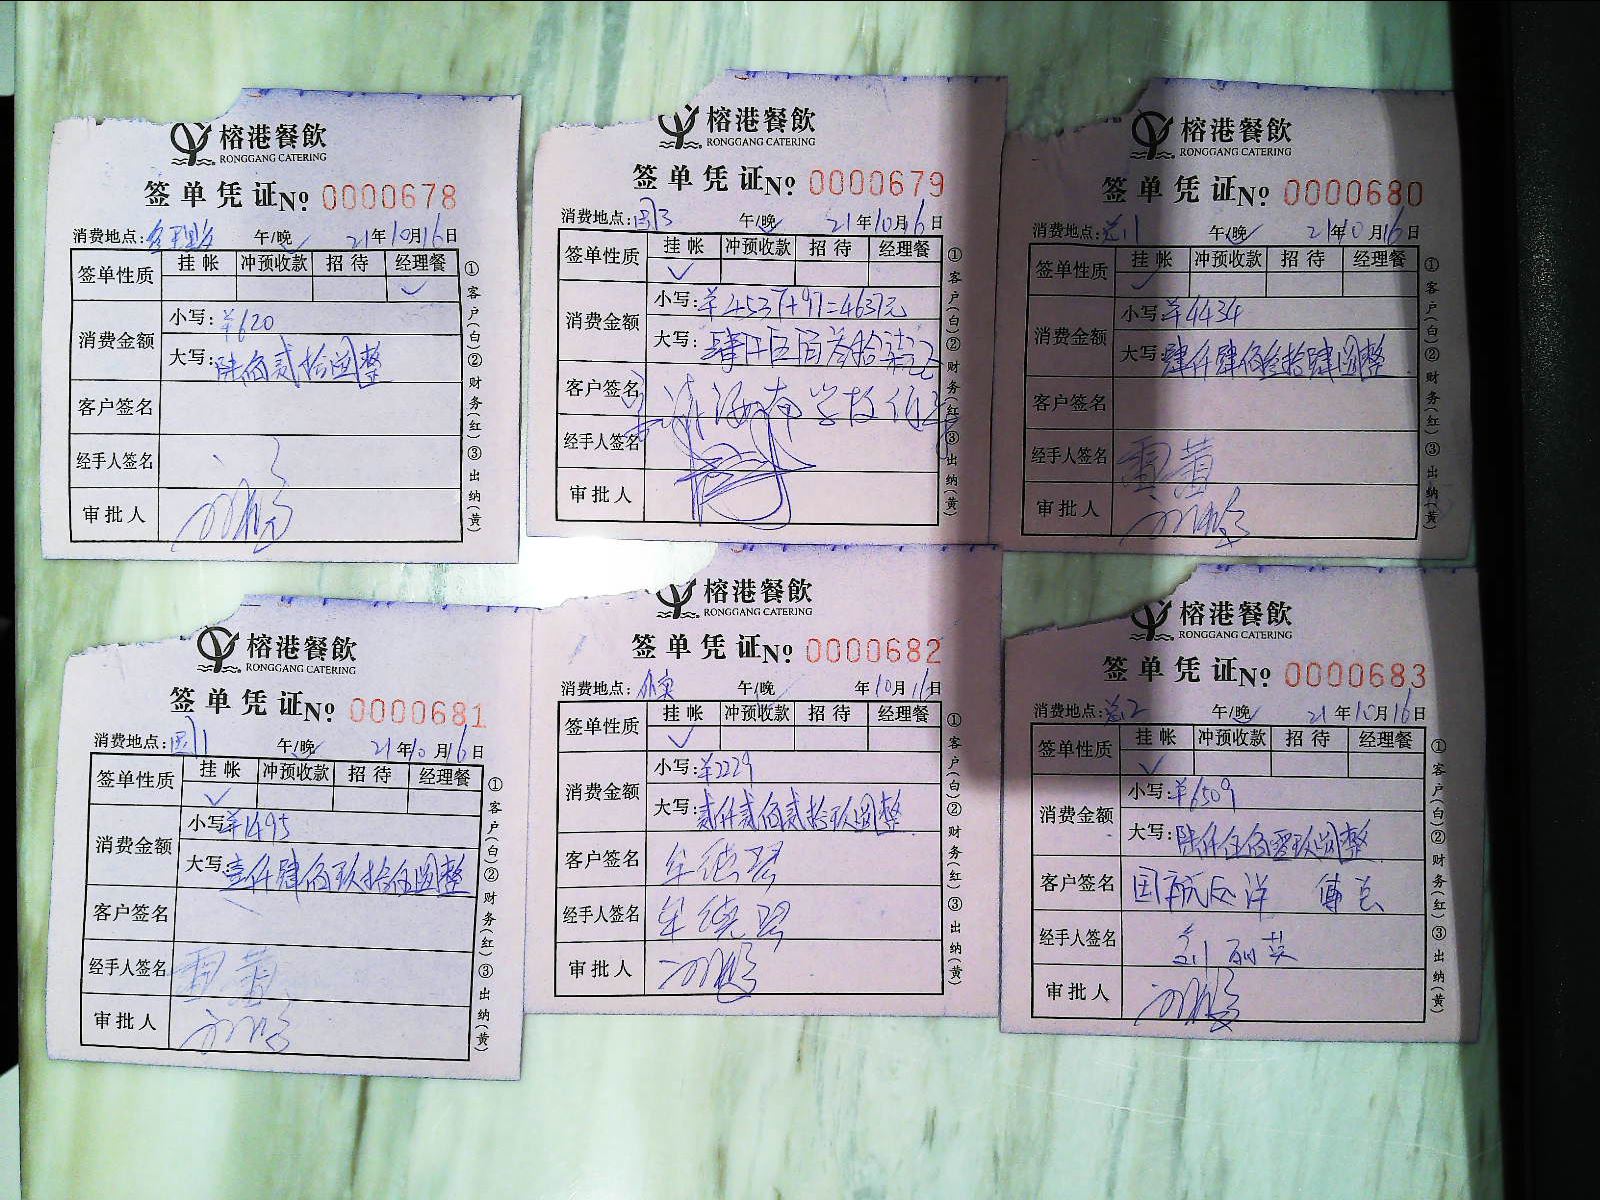 榕港餐飲
RONGGANG CATERING
签单凭证 No 0000678
消费地点: 午/晚 21年10月16日
签单性质 挂帐 冲预收款 招待 经理餐
消费金额 小写:¥620
大写:陆佰贰拾圆整
客户签名
经手人签名
审批人
①客户(白)②财务(红)③出纳(黄)
榕港餐飲
RONGGANG CATERING
签单凭证 No 0000679
消费地点: 午/晚 21年10月16日
签单性质 挂帐 冲预收款 招待 经理餐
消费金额 小写:¥4537+97=4637元
大写:肆仟 佰叁拾柒元
客户签名
经手人签名
审批人
①客户(白)②财务(红)③出纳(黄)
榕港餐飲
RONGGANG CATERING
签单凭证 No 0000680
消费地点: 午/晚 21年10月16日
签单性质 挂帐 冲预收款 招待 经理餐
消费金额 小写:¥4434
大写:肆仟肆佰叁拾肆圆整
客户签名
经手人签名
审批人
①客户(白)②财务(红)③出纳(黄)
榕港餐飲
RONGGANG CATERING
签单凭证 No 0000681
消费地点: 午/晚 21年10月16日
签单性质 挂帐 冲预收款 招待 经理餐
消费金额 小写:¥1495
大写:壹仟肆佰玖拾伍圆整
客户签名
经手人签名
审批人
①客户(白)②财务(红)③出纳(黄)
榕港餐飲
RONGGANG CATERING
签单凭证 No 0000682
消费地点: 午/晚 年10月16日
签单性质 挂帐 冲预收款 招待 经理餐
消费金额 小写:¥2229
大写:贰仟贰佰贰拾玖圆整
客户签名
经手人签名
审批人
①客户(白)②财务(红)③出纳(黄)
榕港餐飲
RONGGANG CATERING
签单凭证 No 0000683
消费地点: 午/晚 21年10月16日
签单性质 挂帐 冲预收款 招待 经理餐
消费金额 小写:¥6509
大写:陆仟伍佰零玖圆整
客户签名
经手人签名
审批人
①客户(白)②财务(红)③出纳(黄)